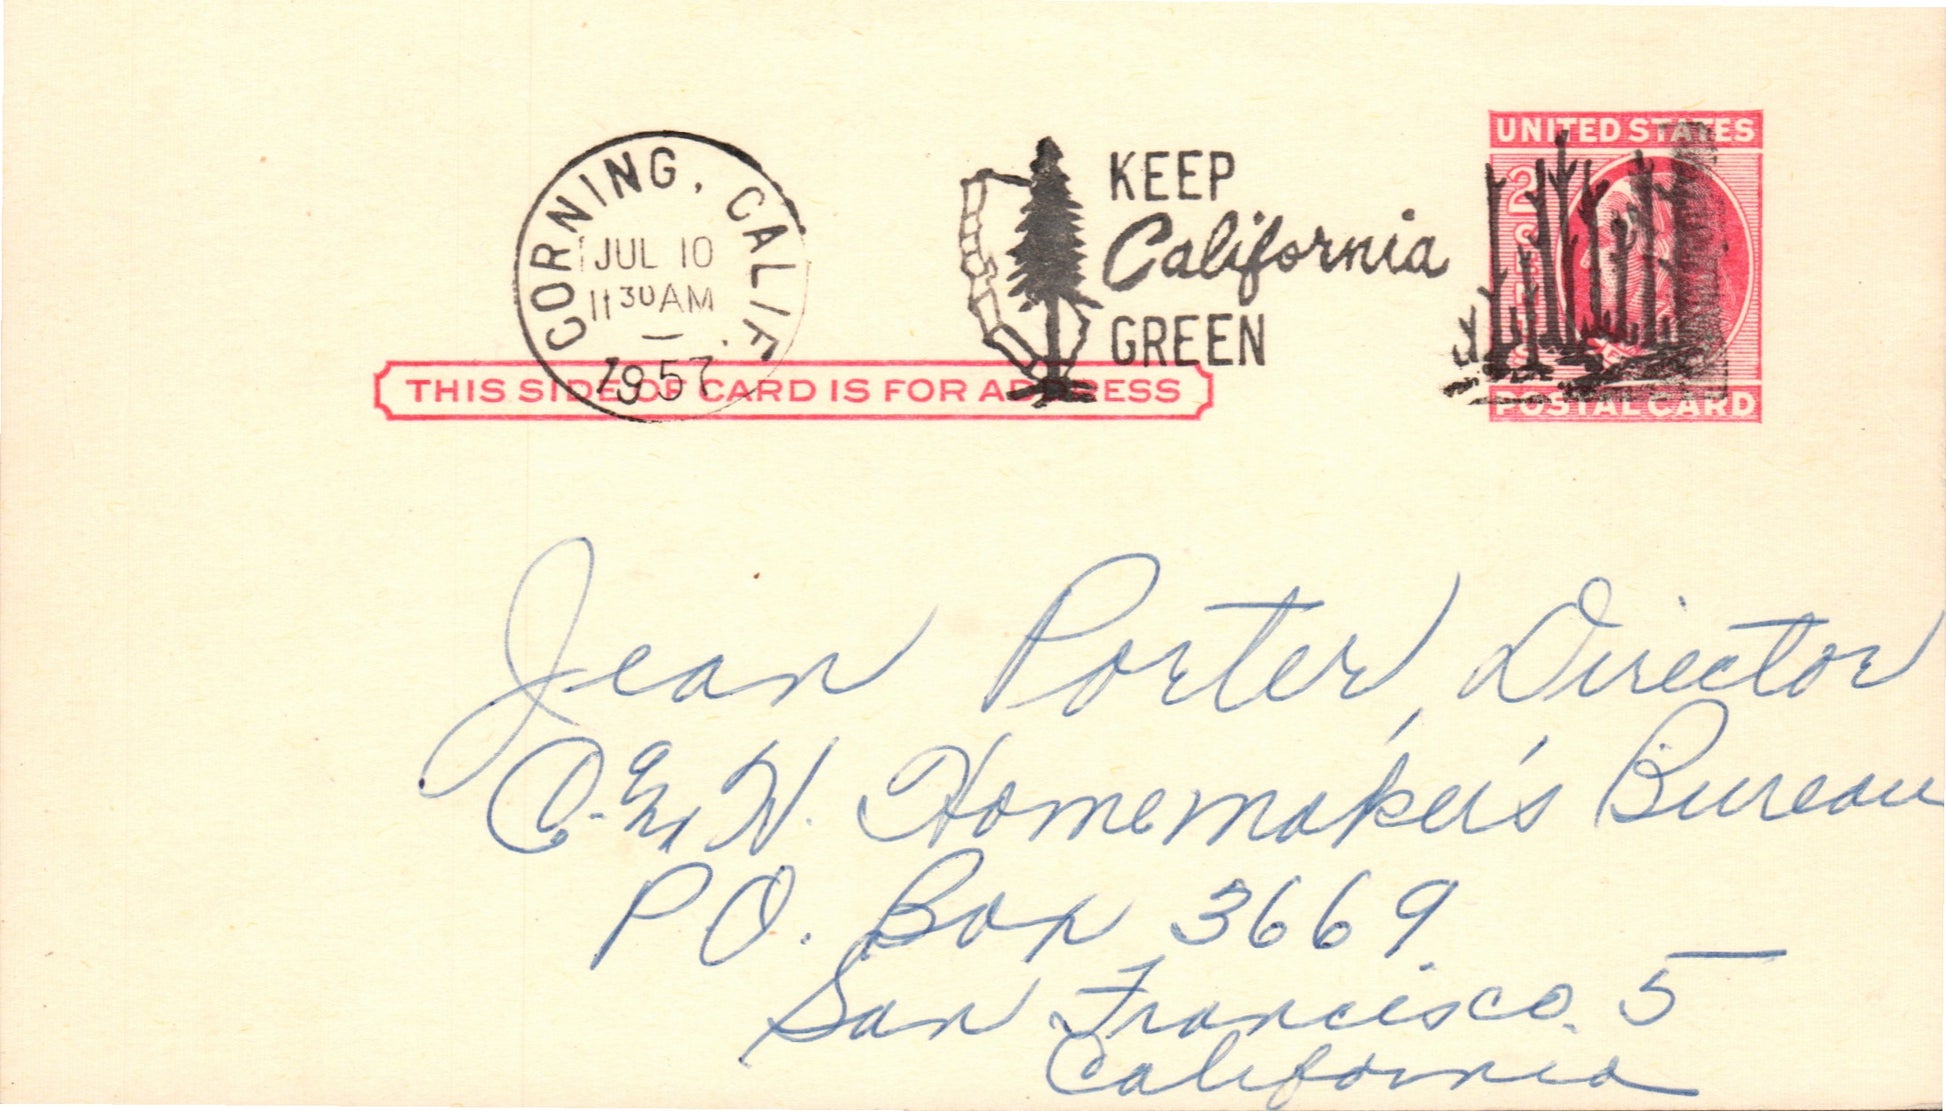 CORNING, CALIF.
JUL 10
11 30 AM
1957
KEEP
California
GREEN
UNITED STATES
2
POSTAL CARD
THIS SIDE OF CARD IS FOR ADDRESS
Jean Porter, Director
C. & H. Homemaker's Bureau
P.O. Box 3669
San Francisco. 5
California